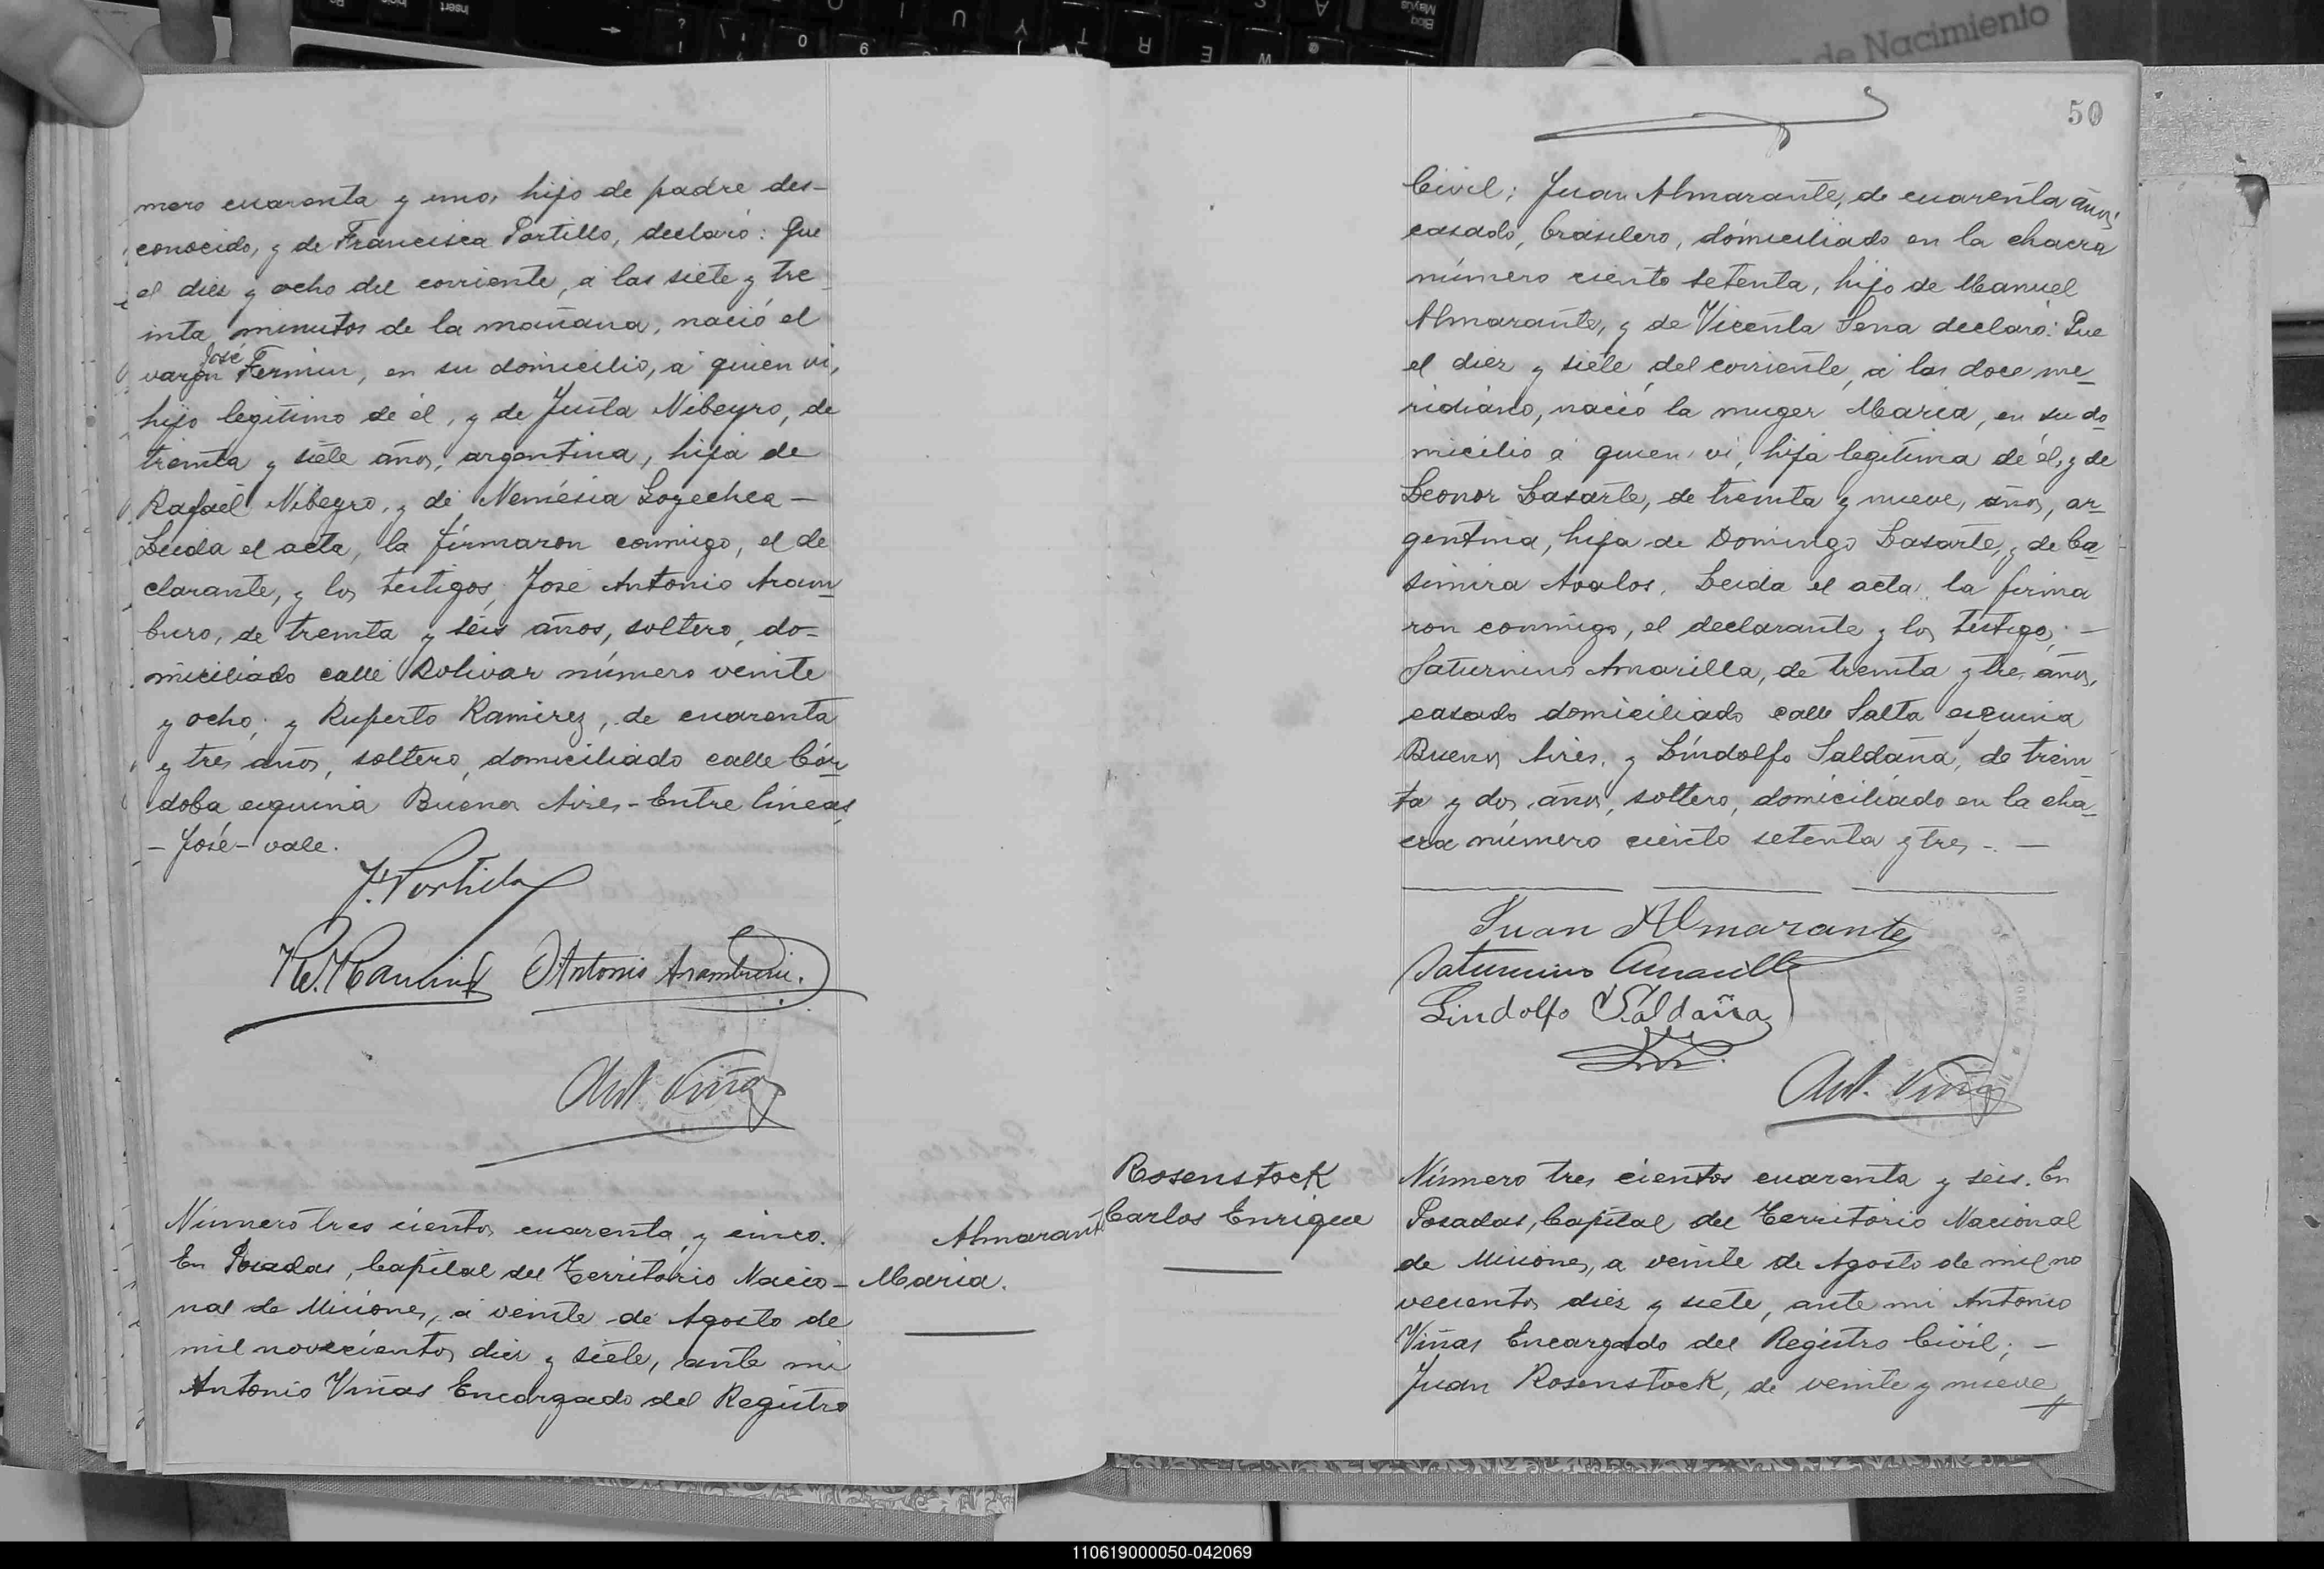 mero cuarenta y uno, hijo de padre des-
conocido, y de Francisca Portillo, declaró: Que
el diez y ocho del corriente, á las siete y tre-
inta minutos de la mañana, nació el
José
varon Fermin, en su domicilio, á quien vi,
hijo legitimo de él, y de Justa Nibeyro, de
treinta y siete años, argentina, hija de
Rafael Nibeyro, y de Nemésia Goyechea—
Leida el acta, la firmaron conmigo, el de
clarante, y los testigos, José Antonio Aram-
buro, de treinta y séis años, soltero, do-
miciliado calle Bolivar número veinte
y ocho; y Ruperto Ramirez, de cuarenta
y tres años, soltero, domiciliado calle Cór-
doba esquina Buenos Aires-Entre lineas
- José- vale.
J. Portillo
R. Ramirez Antonio Aramburu.
Ant. Viñas
Número tres cientos cuarenta y cinco.
En Posadas, Capital del Territorio Nacio-
nal de Misiones, á veinte de Agosto de
mil novecientos diez y siete, ante mi
Antonio Viñas Encargado del Registro
Almarante
Maria.
50
Civil; Juan Almarante, de cuarenta años,
casado, brasilero, domiciliado en la chacra
número ciento setenta, hijo de Manuel
Almarante, y de Vicenta Sena declaró: Que
el diez y siete del corriente, á las doce me-
ridiano, nació la muger Maria, en su do
micilio á quien vi, hija legitima de él, y de
Leonor Lasarte, de treinta y nueve, años, ar-
gentina, hija de Domingo Lasarte, y de Ca-
simira Avalos. Leida el acta, la firma
ron conmigo, el declarante y los testigos; —
Saturnino Amarilla, de treinta y tres años,
casado domiciliado calle Salta esquina
Buenos Aires, y Lindolfo Saldaña, de trein
ta y dos, años, soltero, domiciliado en la cha-
cra número ciento setenta y tres - —
Juan Almarante
Saturnino Amarilla
Lindolfo Saldaña
Ant. Viñas
Rosenstock
Carlos Enrique
Número tres cientos cuarenta y seis. En
Posadas, Capital del Territorio Nacional
de Misiones, a veinte de Agosto de mil no
vecientos diez y siete, ante mi Antonio
Viñas Encargado del Registro Civil; —
Juan Rosenstock, de veinte y nueve
de Nacimiento
110619000050-042069